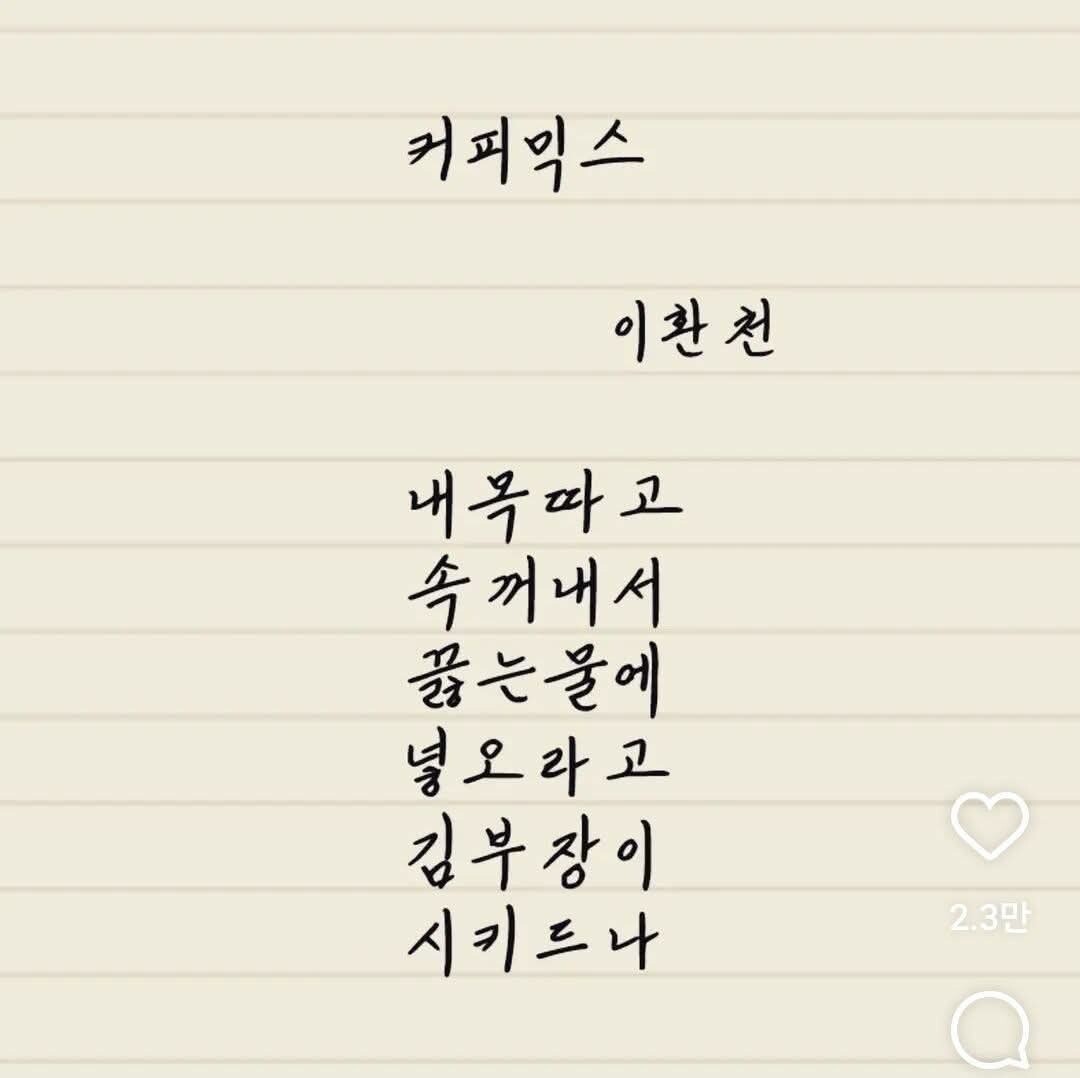 커피믹스
이환천
내목따고
속꺼내서
끓는물에
넣오라고
김부장이
시키드나
2.3만